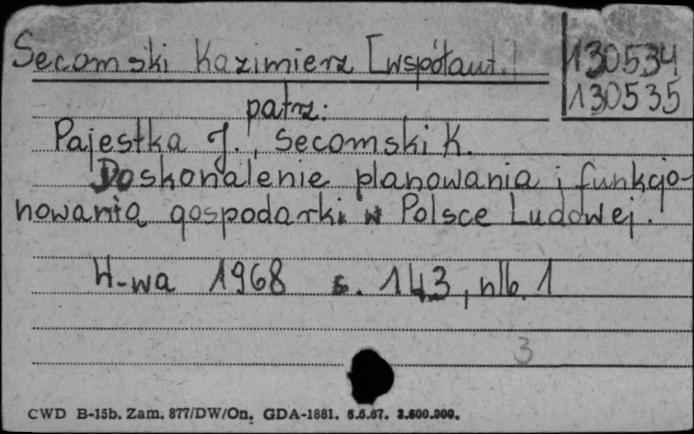 Secomski Kazimierz [współaut.]
130534
130535
patrz:
Pajestka J., Secomski K.
Doskonalenie planowania i funkcjo-
nowania gospodarki w Polsce Ludowej.
W-wa 1968 s. 143, nlb. 1
3
CWD B-15b. Zam. 877/DW/On, GDA-1881. 6.6.67. 3.600.000.